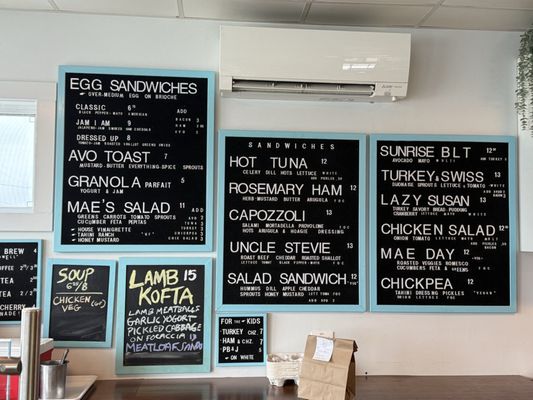 EGG SANDWICHES
OVER-MEDIUM EGG ON BRIOCHE
CLASSIC 6
BLACK PEPPER-MAYO AMERICAN
JAM I AM 9
JALAPENO-JAM SMOKED CHEDDAR
DRESSED UP 8
TOMATO-JAM ROASTED SHALLOT GREENS SWISS
ADD
BACON 3
HAM 3
AVO 3
AVO TOAST 7
MUSTARD-BUTTER EVERYTHING-SPICE SPROUTS
GRANOLA PARFAIT 5
YOGURT & JAM
MAE'S SALAD 11
GREENS CARROTS TOMATO SPROUTS
CUCUMBER FETA PEPITAS
HOUSE VINAIGRETTE
TAHINI RANCH
HONEY MUSTARD
ADD
CHIX SALAD
SANDWICHES
HOT TUNA 12
CELERY DILL HOTS LETTUCE WHITE
ROSEMARY HAM 12
HERB-MUSTARD BUTTER ARUGULA FOC
CAPOZZOLI 13
SALAMI MORTADELLA PROVOLONE FOC
HOTS ARUGULA & HAGGIE DRESSING
UNCLE STEVIE 13
ROAST BEEF CHEDDAR ROASTED SHALLOT
LETTUCE TOMAT BLACK PEPPER-MAYO FOC
SALAD SANDWICH 12
HUMMUS DILL APPLE CHEDDAR
SPROUTS HONEY MUSTARD
SUNRISE BLT 12
AVOCADO MAYO WHITE
TURKEY&SWISS 13
DIJONAISE SPROUTS LETTUCE TOMATO
LAZY SUSAN 13
TURKEY SAVORY BREAD PUDDING
CRANBERRY LETTUCE MAYO WHITE
CHICKEN SALAD 12
ONION TOMATO LETTUCE
MAE DAY 12
ROASTED VEGGIES ROMESCO
CUCUMBERS FETA & GREENS FOC
CHICKPEA 12
TAHINI DRESSING PICKLES *VEGAN*
LETTUCE
BREW
COFFEE
TEA
TEA
CHERRY
LEMONADE
SOUP
6/8
CHICKEN
VEG
LAMB 15
KOFTA
LAMB MEATBALLS
GARLIC YOGURT
PICKLED CABBAGE
ON FOCACCIA
MEATLOAF SANDO
FOR THE KIDS
TURKEY CHZ 7
HAM & CHZ 7
PB+J 5
ON WHITE